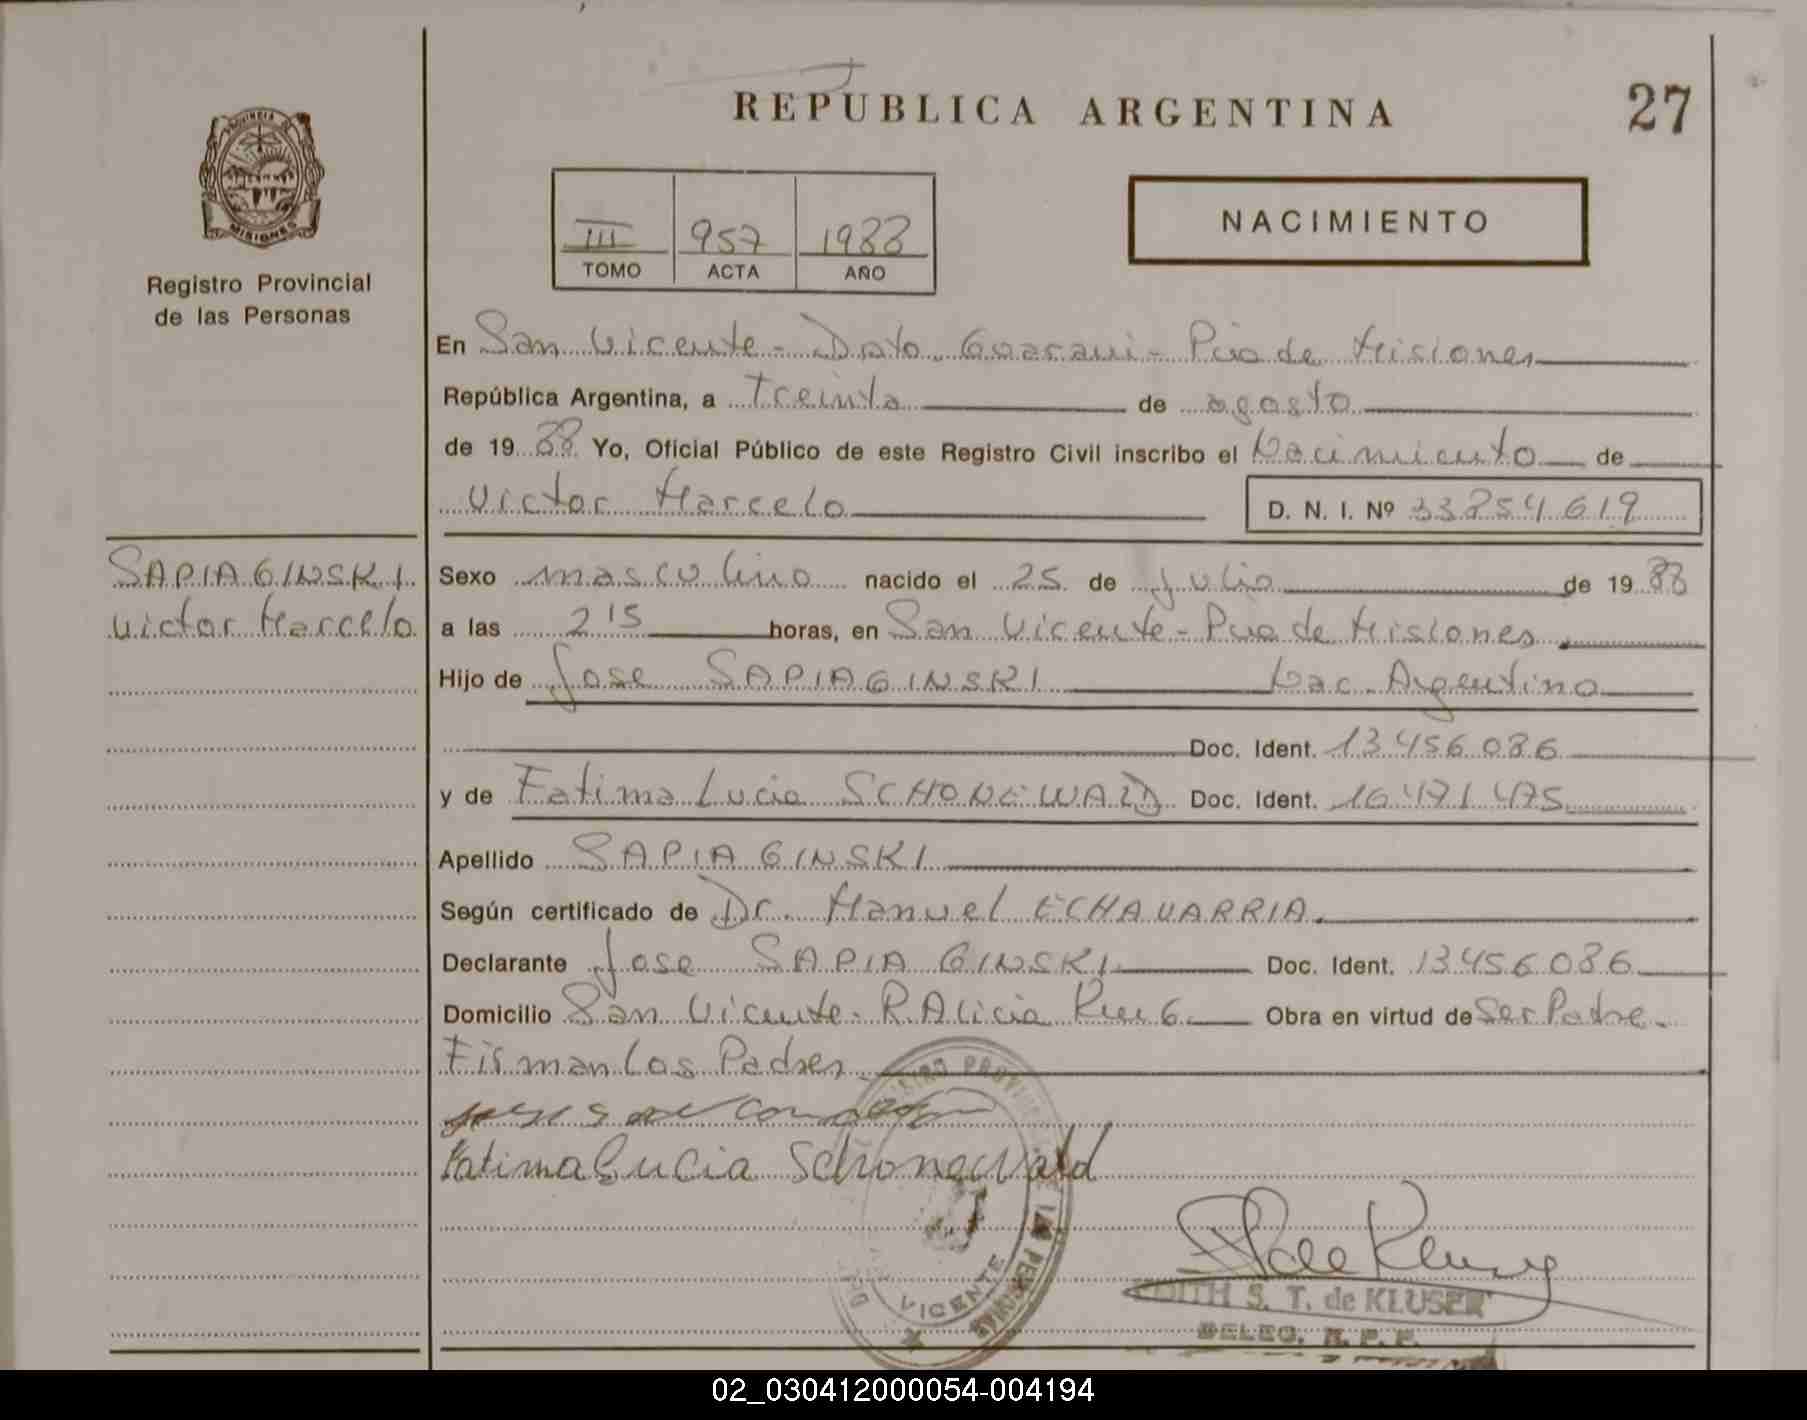 REPUBLICA ARGENTINA
27
PROVINCIA DE
MISIONES
Registro Provincial
de las Personas
III 957 1988
TOMO ACTA AÑO
NACIMIENTO
En San Vicente - Dpto. Guarani - Pcia de Misiones
República Argentina, a Treinta de agosto
de 1988 Yo, Oficial Público de este Registro Civil inscribo el Nacimiento de
Victor Marcelo D. N. I. Nº 33254619
SAPIAGINSKI
Victor Marcelo
Sexo masculino nacido el 25 de Julio de 1988
a las 2 15 horas, en San Vicente - Pcia de Misiones
Hijo de Jose SAPIAGINSKI Nac. Argentino
Doc. Ident. 13 456 086
y de Fatima Lucia SCHONEWALD Doc. Ident. 16.471.475
Apellido SAPIAGINSKI
Según certificado de Dr. Manuel ECHAVARRIA.
Declarante Jose SAPIAGINSKI Doc. Ident. 13456086
Domicilio San Vicente - P. Alicia Km 6 Obra en virtud de Ser Padre.
Firman Los Padres
Fatima Lucia Schonewald
VICENTE
EDITH S. T. de KLUSER
DELEG. R. P. P.
02_030412000054-004194